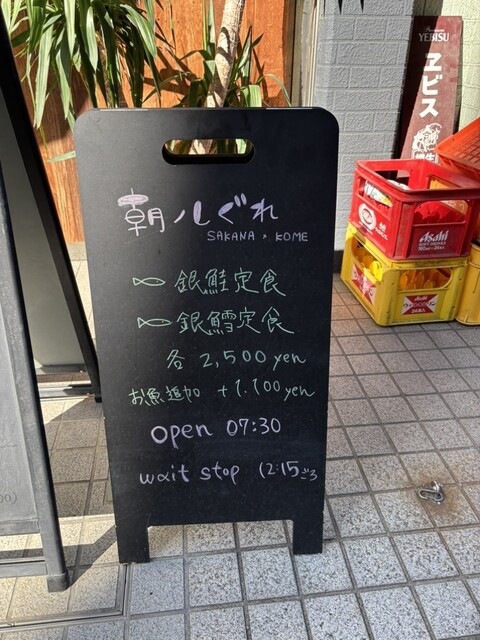 朝ノしぐれ
SAKANA × KOME
銀鮭定食
銀鱈定食
各 2,500 yen
お魚追加 +1.100 yen
open 07:30
wait stop 12:15ごろ
YEBISU
ヱビス
Asahi
Asahi